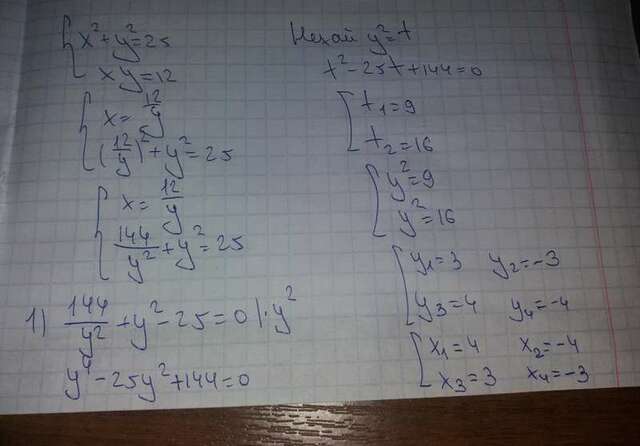 { x² + y² = 25
xy = 12
{ x = 12/y
(12/y)² + y² = 25
{ x = 12/y
144/y² + y² = 25
1) 144/y² + y² - 25 = 0 | · y²
y⁴ - 25y² + 144 = 0
Нехай y² = t
t² - 25t + 144 = 0
[ t₁ = 9
t₂ = 16
[ y² = 9
y² = 16
[ y₁ = 3 y₂ = -3
y₃ = 4 y₄ = -4
[ x₁ = 4 x₂ = -4
x₃ = 3 x₄ = -3